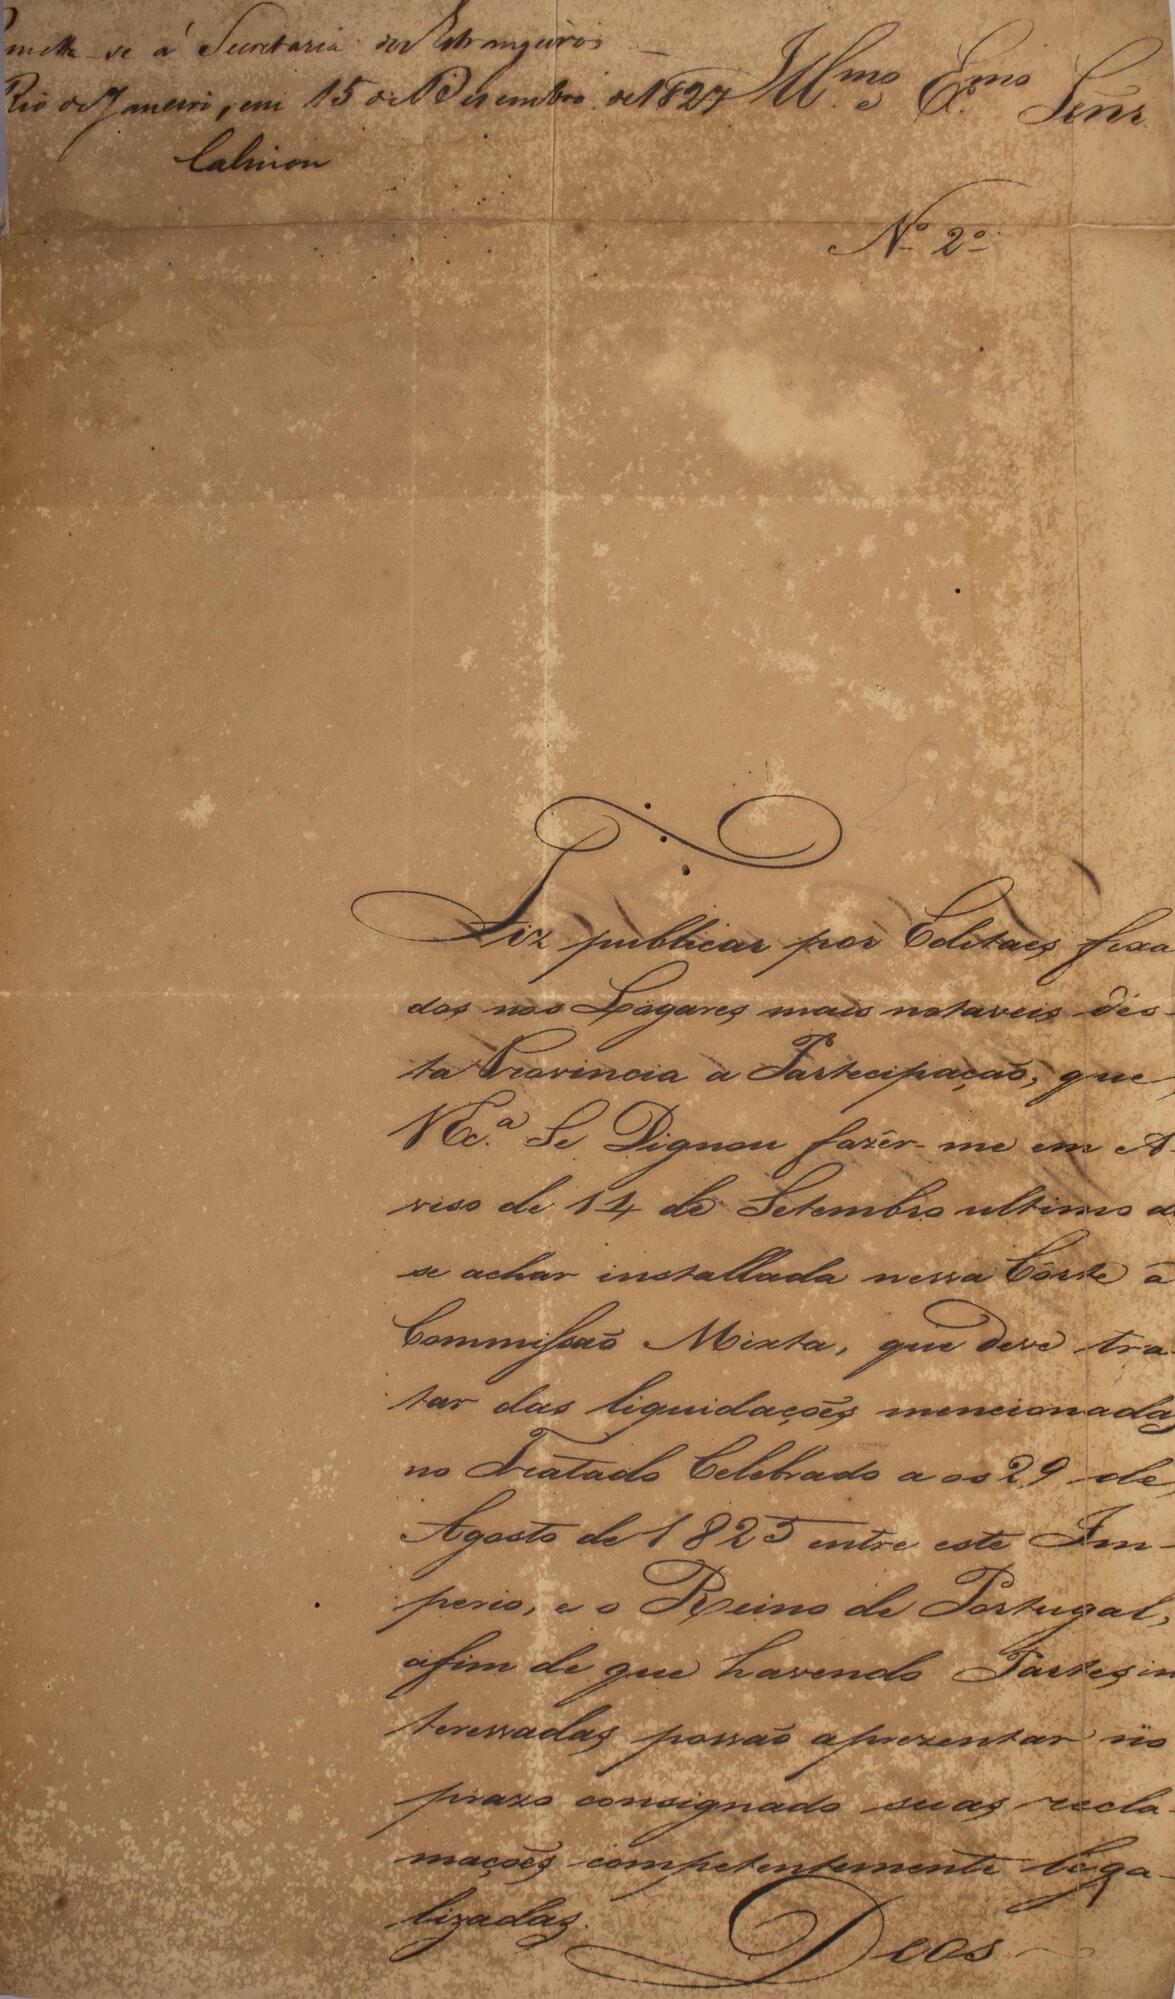 Remette-se á Secretaria dos Estrangeiros
Rio de Janeiro, em 15 de Dezembro de 1827
Calmon
Ill.mo e Ex.mo Señr
N.º 2.º
Fiz publicar por Editaes fixa
dos nos Logares mais notaveis des-
ta Provincia a Partecipação, que
V.Ex.ª Se Dignou fazêr-me em A-
viso de 14 de Setembro ultimo de
se achar installada nessa Côrte a
Commissão Mixta, que deve tra-
tar das liquidações mencionadas
no Tratado Celebrado a os 29 de
Agosto de 1825 entre este Im-
perio, e o Reino de Portugal,
afim de que havendo Partes in
teressadas possão aprezentar no
prazo consignado suas recla-
mações competentemente lega-
lizadas.
Deos